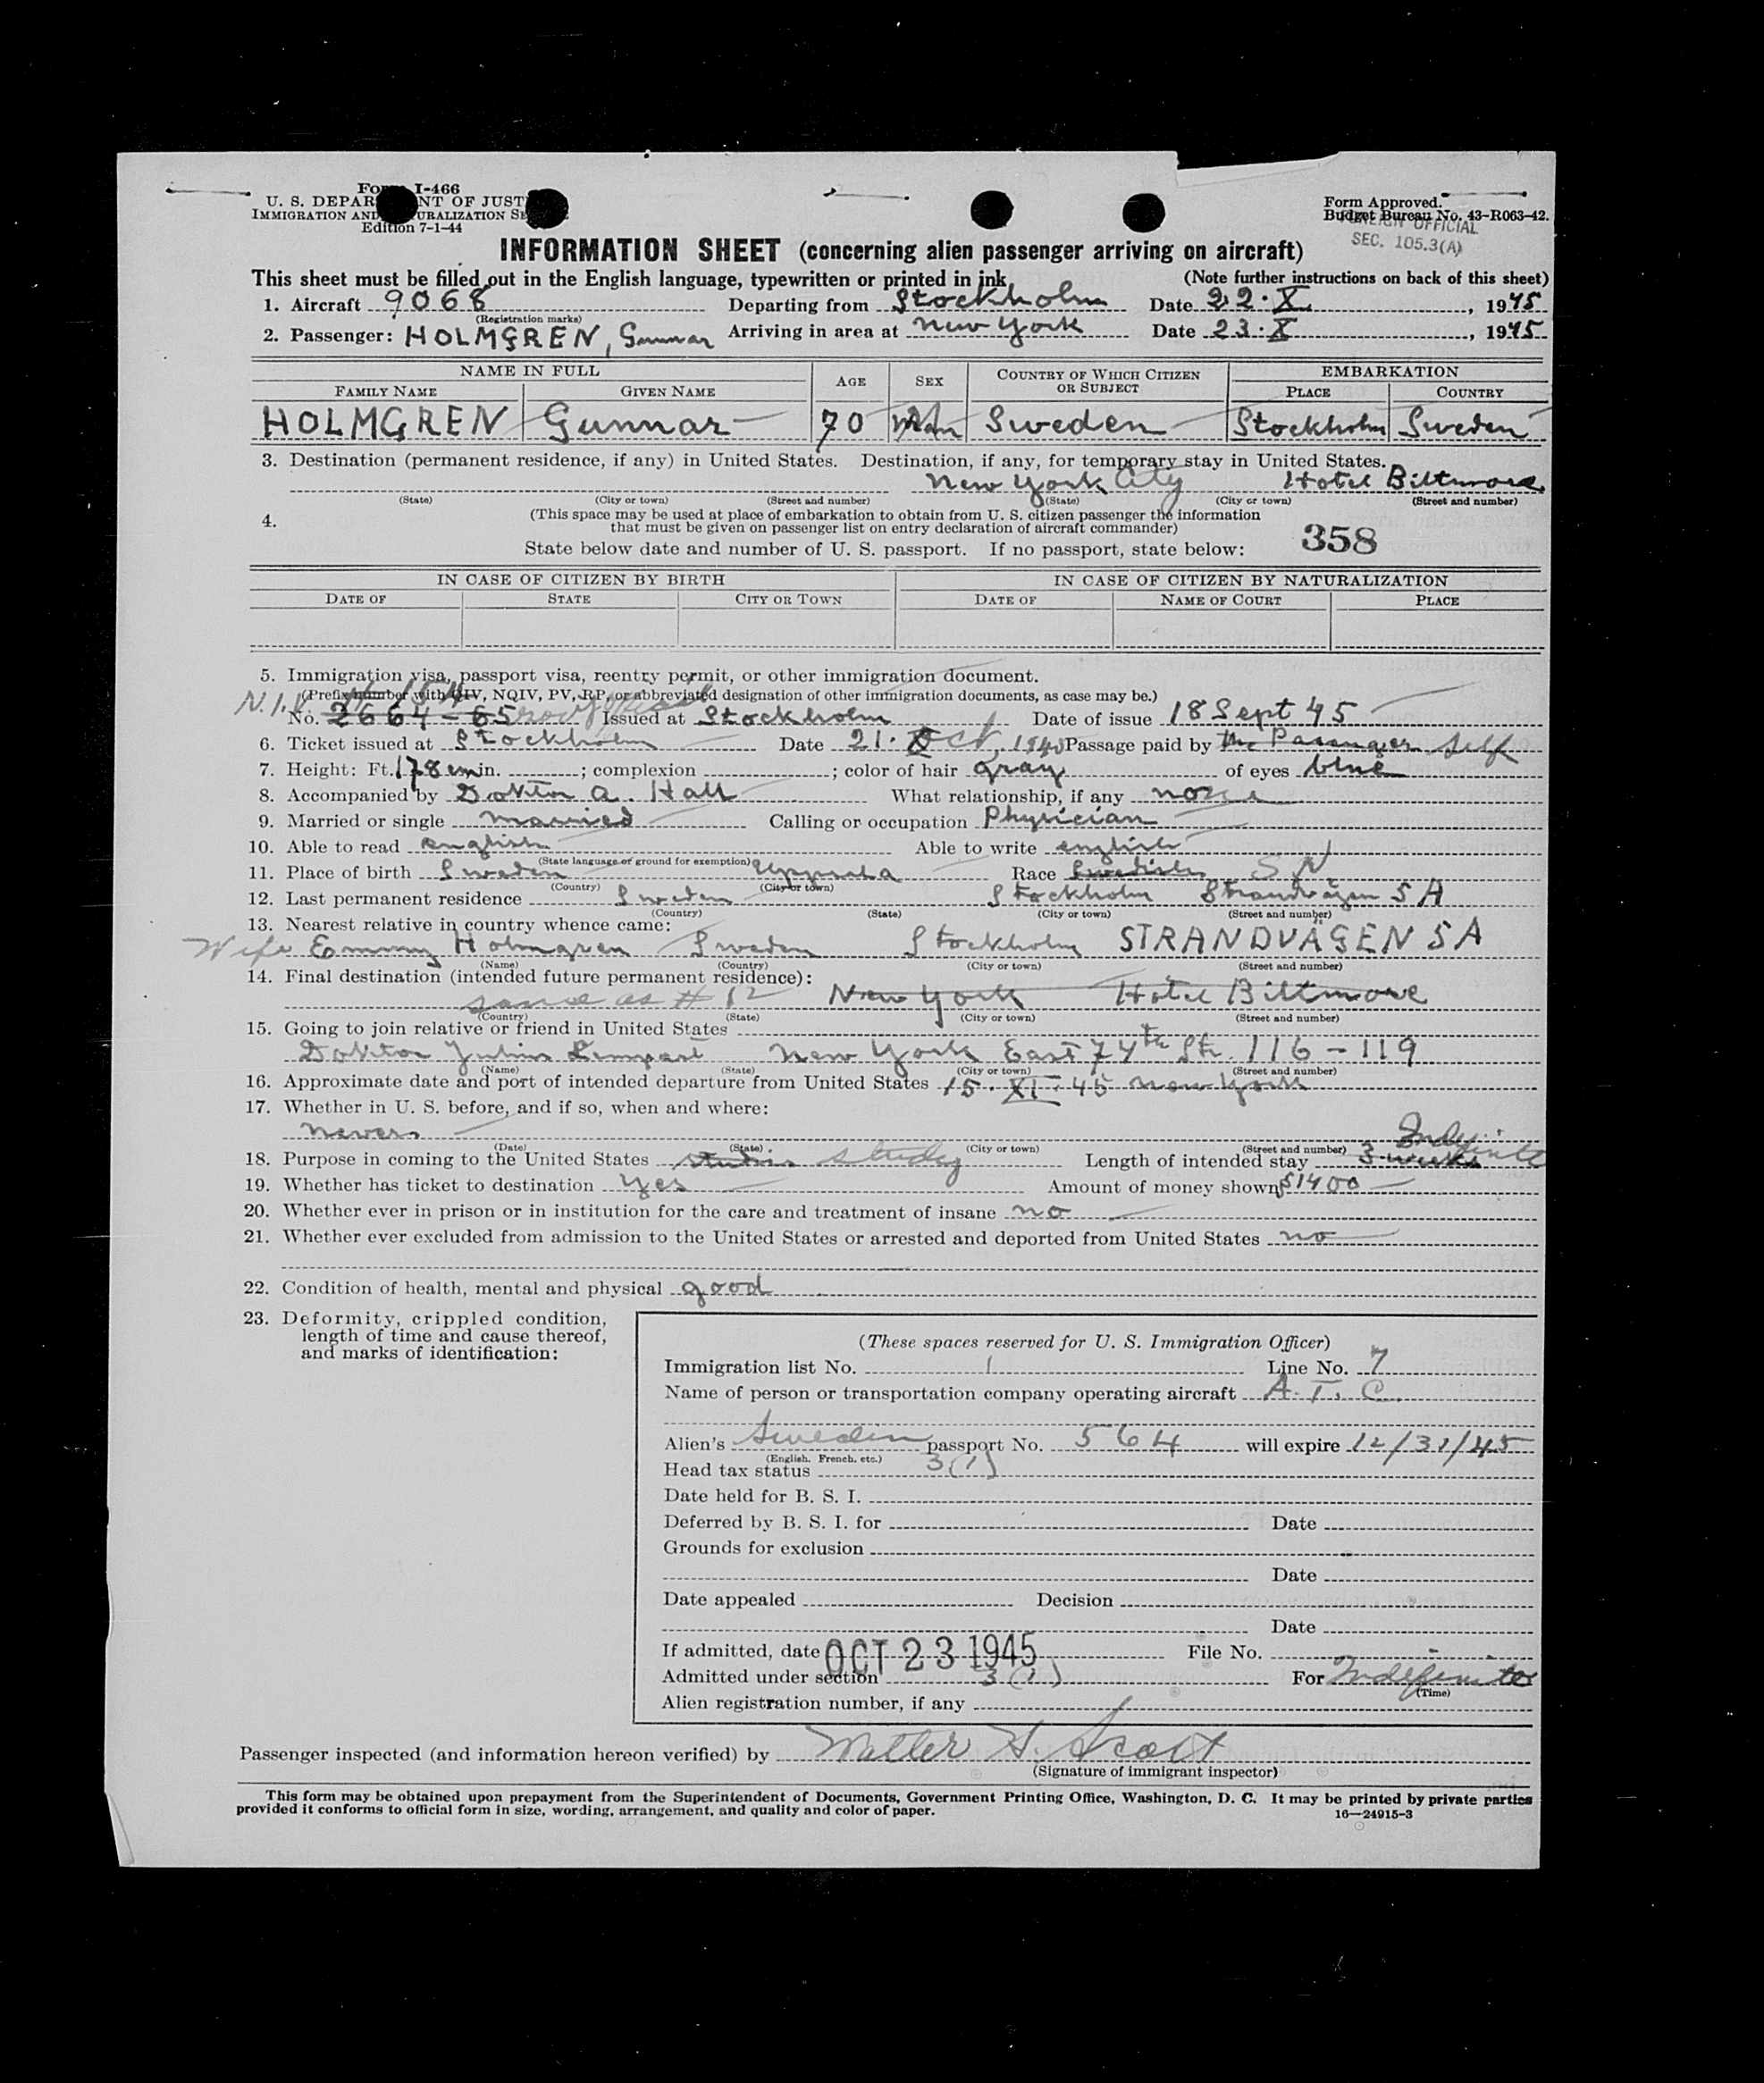 Form I-466
U. S. DEPARTMENT OF JUSTICE
IMMIGRATION AND NATURALIZATION SERVICE
Edition 7-1-44
Form Approved.
Budget Bureau No. 43-R063-42.
OFFICIAL
SEC. 105.3(A)
INFORMATION SHEET (concerning alien passenger arriving on aircraft)
This sheet must be filled out in the English language, typewritten or printed in ink (Note further instructions on back of this sheet)
1. Aircraft 9068 Departing from Stockholm Date 22.X, 1945
(Registration marks)
2. Passenger: HOLMGREN, Gunnar Arriving in area at New York Date 23.X, 1945
NAME IN FULL AGE SEX COUNTRY OF WHICH CITIZEN OR SUBJECT EMBARKATION
FAMILY NAME GIVEN NAME PLACE COUNTRY
HOLMGREN Gunnar 70 Sweden Stockholm Sweden
3. Destination (permanent residence, if any) in United States. Destination, if any, for temporary stay in United States.
New York City Hotel Biltmore
(State) (City or town) (Street and number) (State) (City or town) (Street and number)
4. (This space may be used at place of embarkation to obtain from U. S. citizen passenger the information
that must be given on passenger list on entry declaration of aircraft commander)
State below date and number of U. S. passport. If no passport, state below: 358
IN CASE OF CITIZEN BY BIRTH IN CASE OF CITIZEN BY NATURALIZATION
DATE OF STATE CITY OR TOWN DATE OF NAME OF COURT PLACE
5. Immigration visa, passport visa, reentry permit, or other immigration document.
(Prefix number with QIV, NQIV, PV, RP, or abbreviated designation of other immigration documents, as case may be.)
N.I.V. No. 2664-65 Issued at Stockholm Date of issue 18 Sept 45
6. Ticket issued at Stockholm Date 21. Oct. Passage paid by the Passenger Self
7. Height: Ft. 178 cm in. ; complexion ; color of hair gray of eyes blue
8. Accompanied by Doktor A. Hall What relationship, if any none
9. Married or single married Calling or occupation Physician
10. Able to read english Able to write english
(State language or ground for exemption)
11. Place of birth Sweden Uppsala Race Swedish
(Country) (City or town)
12. Last permanent residence Sweden Stockholm Strandvägen 5 A
(Country) (State) (City or town) (Street and number)
13. Nearest relative in country whence came:
Wife Emmy Holmgren Sweden Stockholm STRANDVÄGEN 5 A
(Name) (Country) (City or town) (Street and number)
14. Final destination (intended future permanent residence):
same as # 12 New York Hotel Biltmore
(Country) (State) (City or town) (Street and number)
15. Going to join relative or friend in United States
Doktor Julius Lempert New York East 74th Str. 116-119
(Name) (State) (City or town) (Street and number)
16. Approximate date and port of intended departure from United States 15.XI.45 New York
17. Whether in U. S. before, and if so, when and where:
never
(Date) (State) (City or town) (Street and number)
18. Purpose in coming to the United States study Length of intended stay 3 weeks Indefinite
19. Whether has ticket to destination yes Amount of money shown $1400
20. Whether ever in prison or in institution for the care and treatment of insane no
21. Whether ever excluded from admission to the United States or arrested and deported from United States no
22. Condition of health, mental and physical good
23. Deformity, crippled condition,
length of time and cause thereof,
and marks of identification:
(These spaces reserved for U. S. Immigration Officer)
Immigration list No. 1 Line No. 7
Name of person or transportation company operating aircraft A. T. C.
Alien's Sweden passport No. 564 will expire 12/31/45
(English, French, etc.)
Head tax status 3(1)
Date held for B. S. I.
Deferred by B. S. I. for Date
Grounds for exclusion
Date
Date appealed Decision
Date
If admitted, date OCT 23 1945 File No.
Admitted under section 3(1) For Indefinite
(Time)
Alien registration number, if any
Passenger inspected (and information hereon verified) by Walter H. Scott
(Signature of immigrant inspector)
This form may be obtained upon prepayment from the Superintendent of Documents, Government Printing Office, Washington, D. C. It may be printed by private parties
provided it conforms to official form in size, wording, arrangement, and quality and color of paper. 16—24915-3